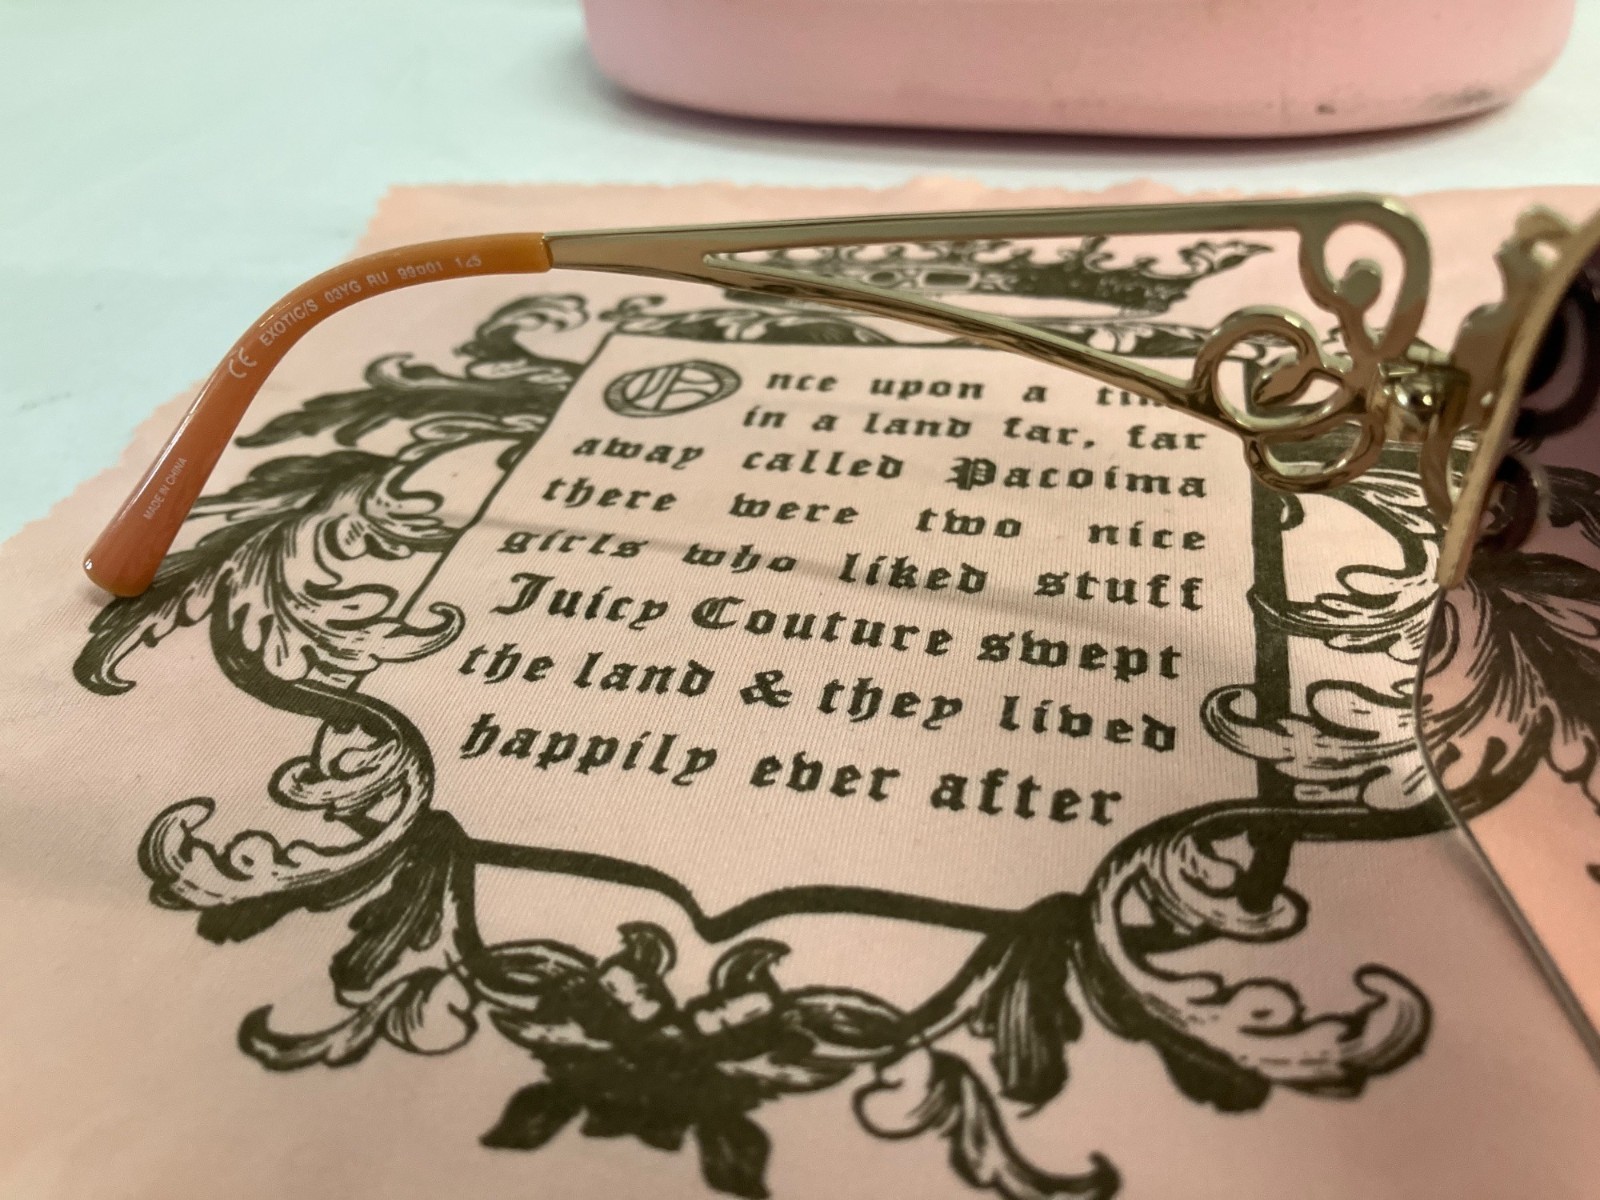 CE EXOTIC/S 03YG RU 99□01 125
MADE IN CHINA
Once upon a time
in a land far, far
away called Pacoima
there were two nice
girls who liked stuff
Juicy Couture swept
the land & they lived
happily ever after